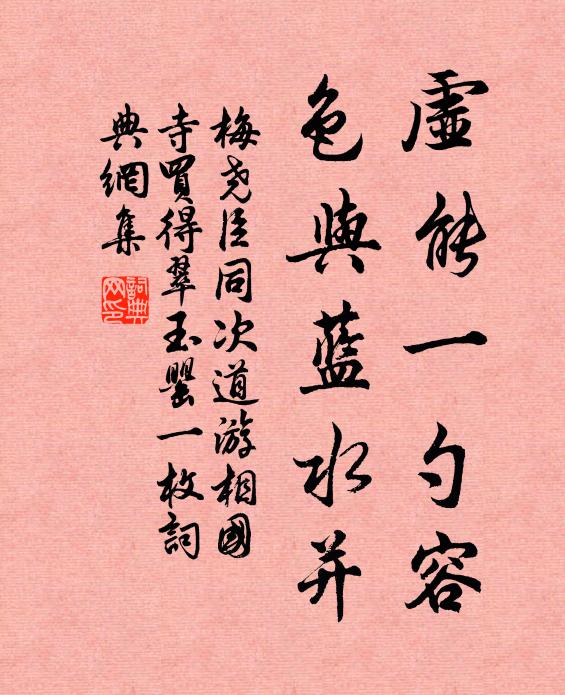 虛能一勺容
色與藍水并
梅堯臣同次道游相國
寺買得翠玉罌一枚詞
典網集
詞典網印